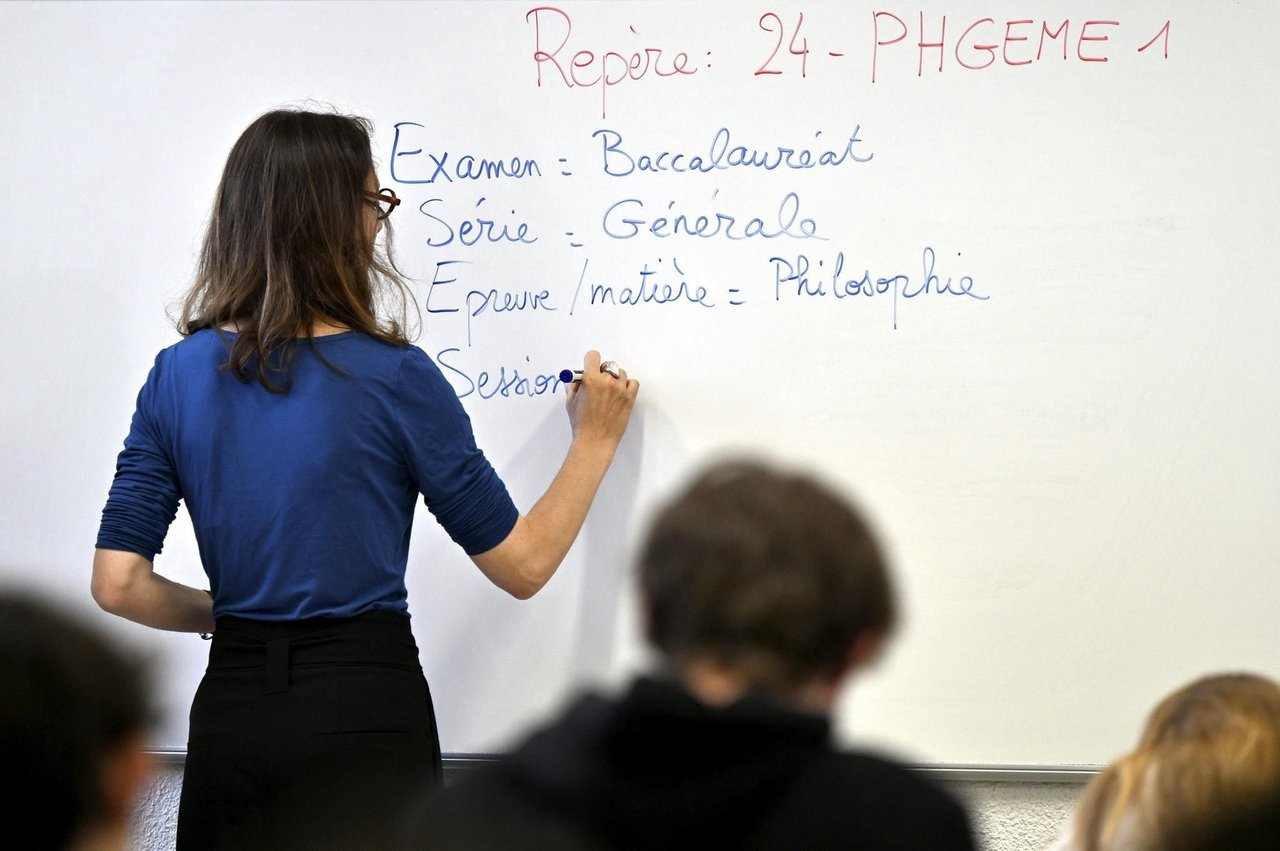 Repère: 24 - PHGEME 1
Examen = Baccalauréat
Série = Générale
Epreuve / matière = Philosophie
Session